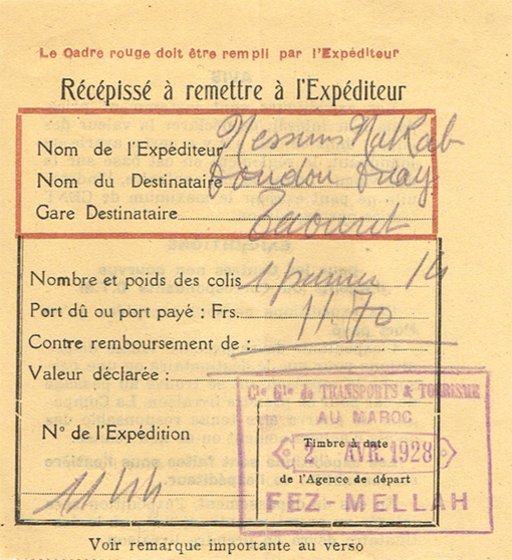 Le Cadre rouge doit être rempli par l'Expéditeur
Récépissé à remettre à l'Expéditeur
Nom de l'Expéditeur Nessim
Nom du Destinataire Doudou
Gare Destinataire Taourirt
Nombre et poids des colis 1 panier 14
Port dû ou port payé : Frs. 11 70
Contre remboursement de :
Valeur déclarée :
Cie Gle de TRANSPORTS & TOURISME
AU MAROC
N° de l'Expédition
Timbre à date
2 AVR. 1928
de l'Agence de départ
1144
FEZ-MELLAH
Voir remarque importante au verso